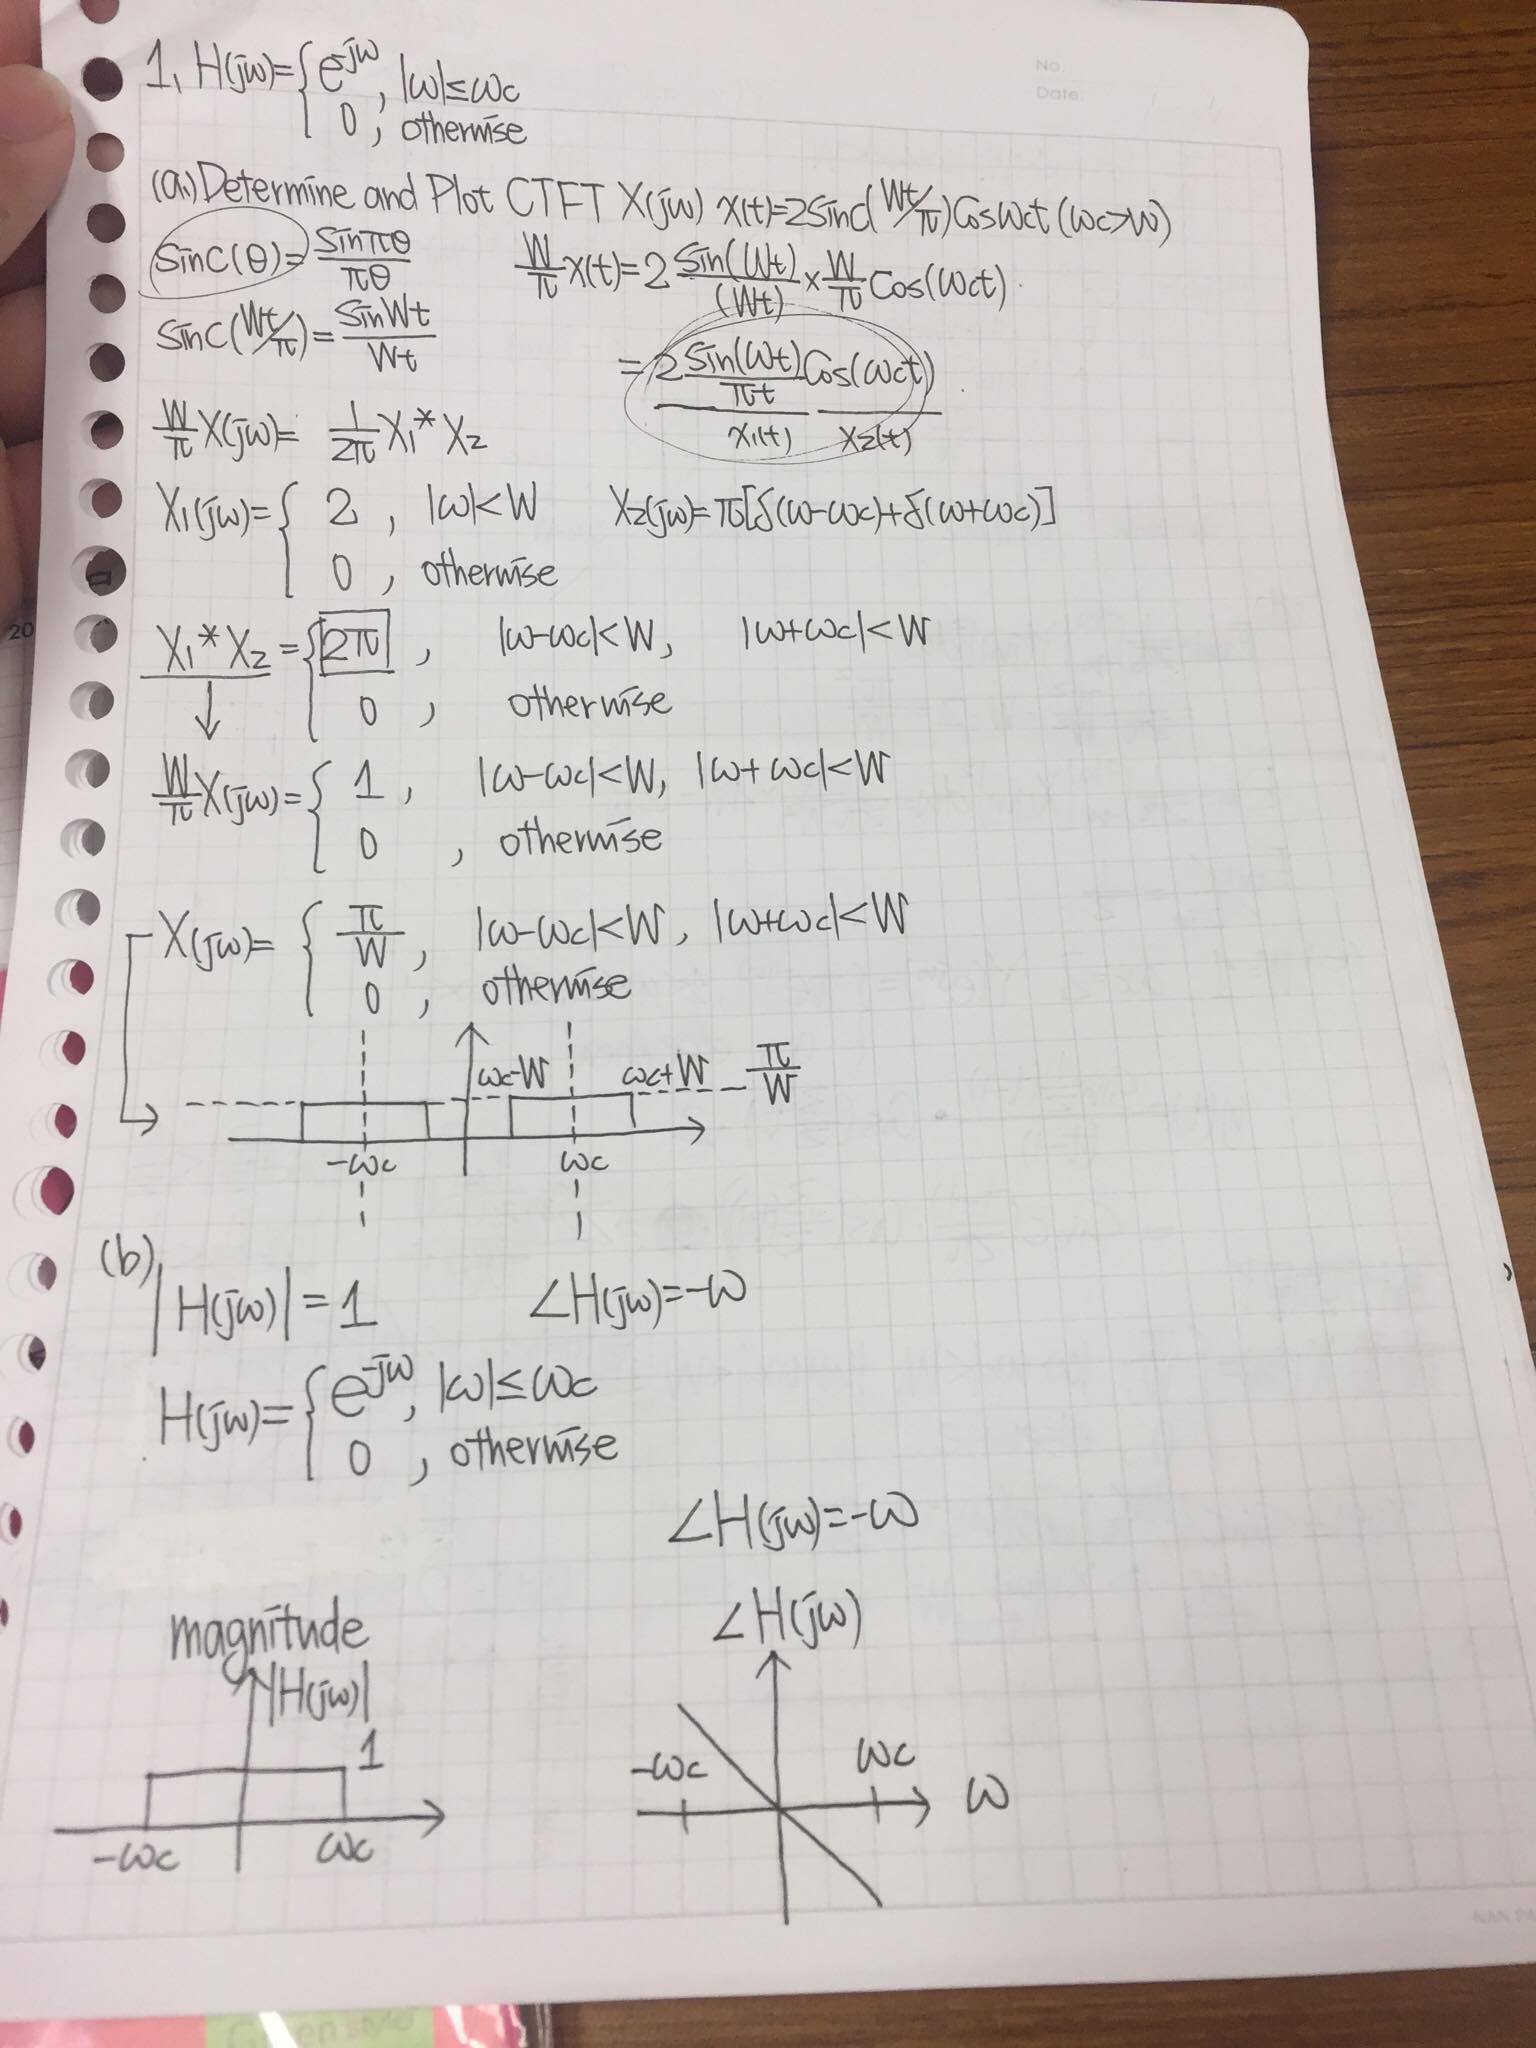 No.
Date.
1, H(jω)={ e^-jω , |ω|≤ωc
0 , otherwise
(a.) Determine and Plot CTFT X(jω) x(t)=2sinc(Wt/π)Cosωct (ωc>W)
Sinc(θ)=Sinπθ/πθ
W/π x(t)=2 Sin(Wt)/(Wt) × W/π Cos(ωct)
Sinc(Wt/π)=SinWt/Wt
=2 Sin(Wt)/πt Cos(ωct)
x1(t) x2(t)
W/π X(jω)= 1/2π X1*X2
X1(jω)={ 2 , |ω|<W
0 , otherwise
X2(jω)=π[δ(ω-ωc)+δ(ω+ωc)]
X1*X2={ 2π , |ω-ωc|<W, |ω+ωc|<W
0 , otherwise
W/π X(jω)={ 1 , |ω-ωc|<W, |ω+ωc|<W
0 , otherwise
X(jω)={ π/W , |ω-ωc|<W, |ω+ωc|<W
0 , otherwise
ωc-W ωc+W π/W
-ωc ωc
(b)
|H(jω)|=1 ∠H(jω)=-ω
H(jω)={ e^-jω , |ω|≤ωc
0 , otherwise
∠H(jω)=-ω
magnitude
|H(jω)|
1
-ωc ωc
∠H(jω)
-ωc ωc ω
20